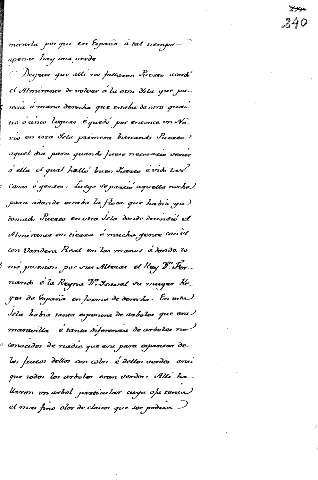 240
moverla por que en España á tal tiempo
apenas hay una verde
Despues que alli no fallaron Puerto acordó
el Almirante de volver á la otra Isla que pa-
recia á mano derecha que estaba de otra quatro
ó cinco leguas é quedó por entonce un Na-
vio en esta Isla primera buscando Puerto
aquel dia para quando fuese necesario venir
á ella el qual halló buen Puerto é vido las
Casas é gentes. Luego se partió aquella noche
para adonde estaba la flota que habia ya
tomado Puerto en otra Isla donde decendió el
Almirante en tierra é mucha gente con él
con Vandera Real en las manos á donde to-
mó posesion por sus Altezas el Rey Dn. Fer-
nando é la Reyna Da. Isabel su muger Re-
yes de España en forma de derecho. En esta
Isla habia tanta espesura de arboles que era
maravilla é tanta diferencia de arboles no
conocidos de nadie que era para espantar de
los frutos dellos con color é dellos verdes ansi
que todos los arboles eran verdes. Alli ha-
llaron un arbol particular cuya oja tenia
el mas fino olor de clavos que ser podria